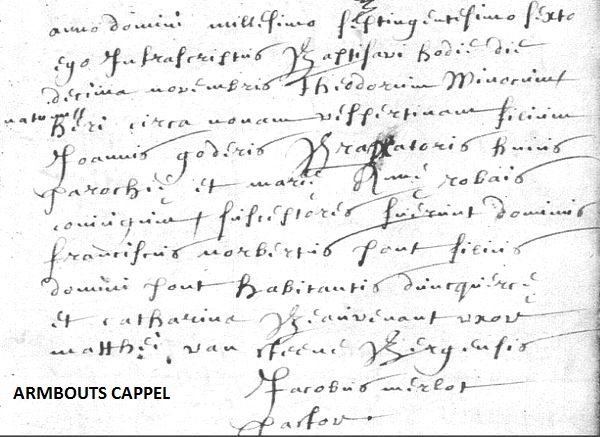 anno domini millesimo septingentesimo sexto
ego Infrascriptus Baptisavi hodie die
decima novembris Theodorum Winocum
natum
heri circa nonam vespertinam filium
Joannis goderis huius
parochiē et marie Anne robais
coniugum susceptores fuerunt dominus
franciscus norbertus pont filius
domini pont habitantis duncquercē
et catharina Beauvenant uxor
matthei van steene Bergensis
Jacobus merlot
pastor
ARMBOUTS CAPPEL